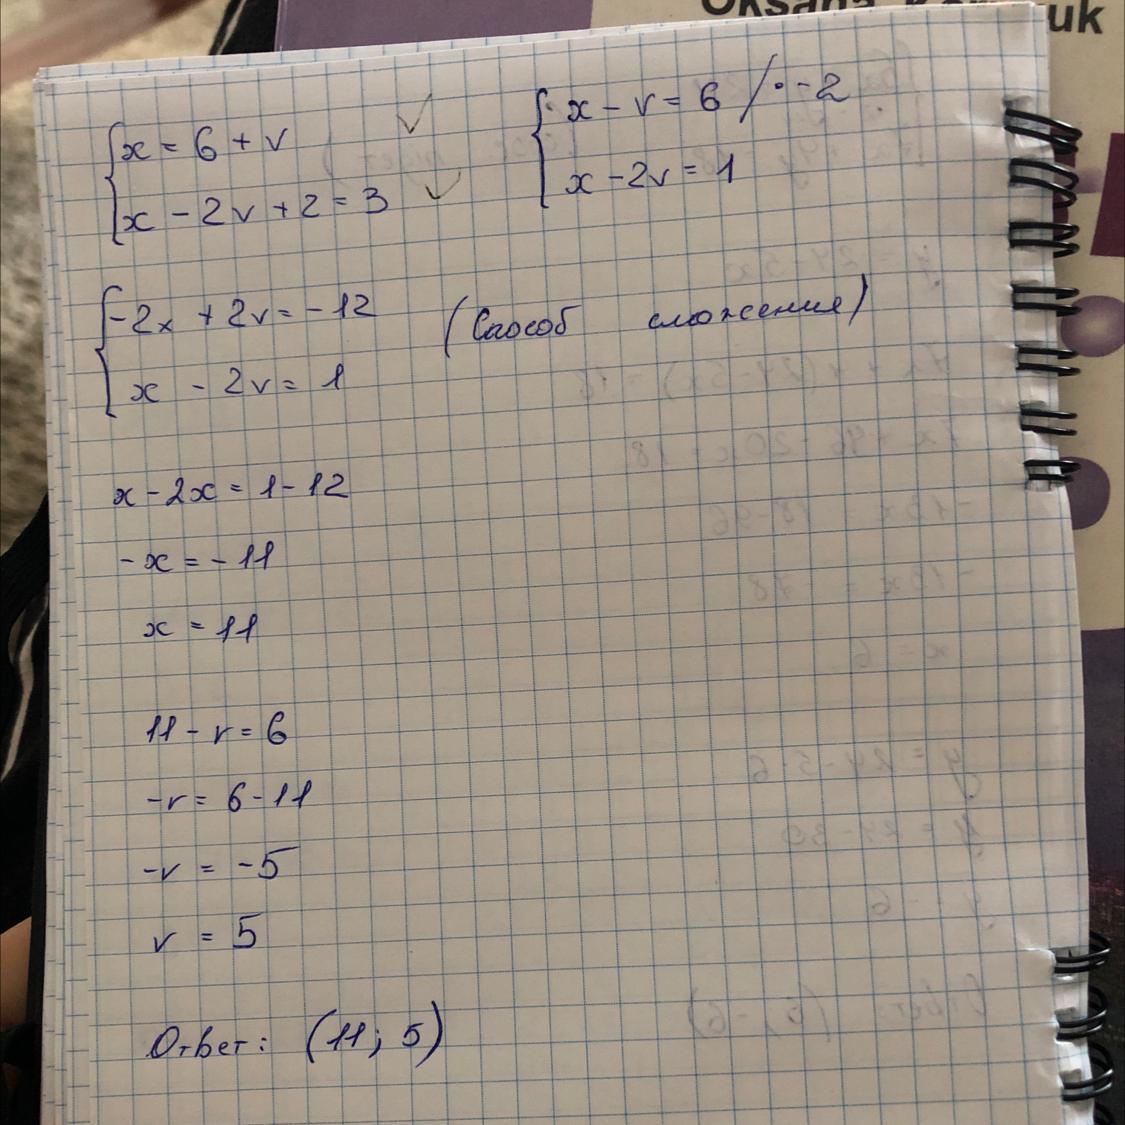 Oksana
uk
x = 6 + v
x - 2v + 2 = 3
x - v = 6 / · -2
x - 2v = 1
-2x + 2v = -12
x - 2v = 1
(Способ сложения)
x - 2x = 1 - 12
-x = -11
x = 11
11 - v = 6
-v = 6 - 11
-v = -5
v = 5
Ответ: (11; 5)